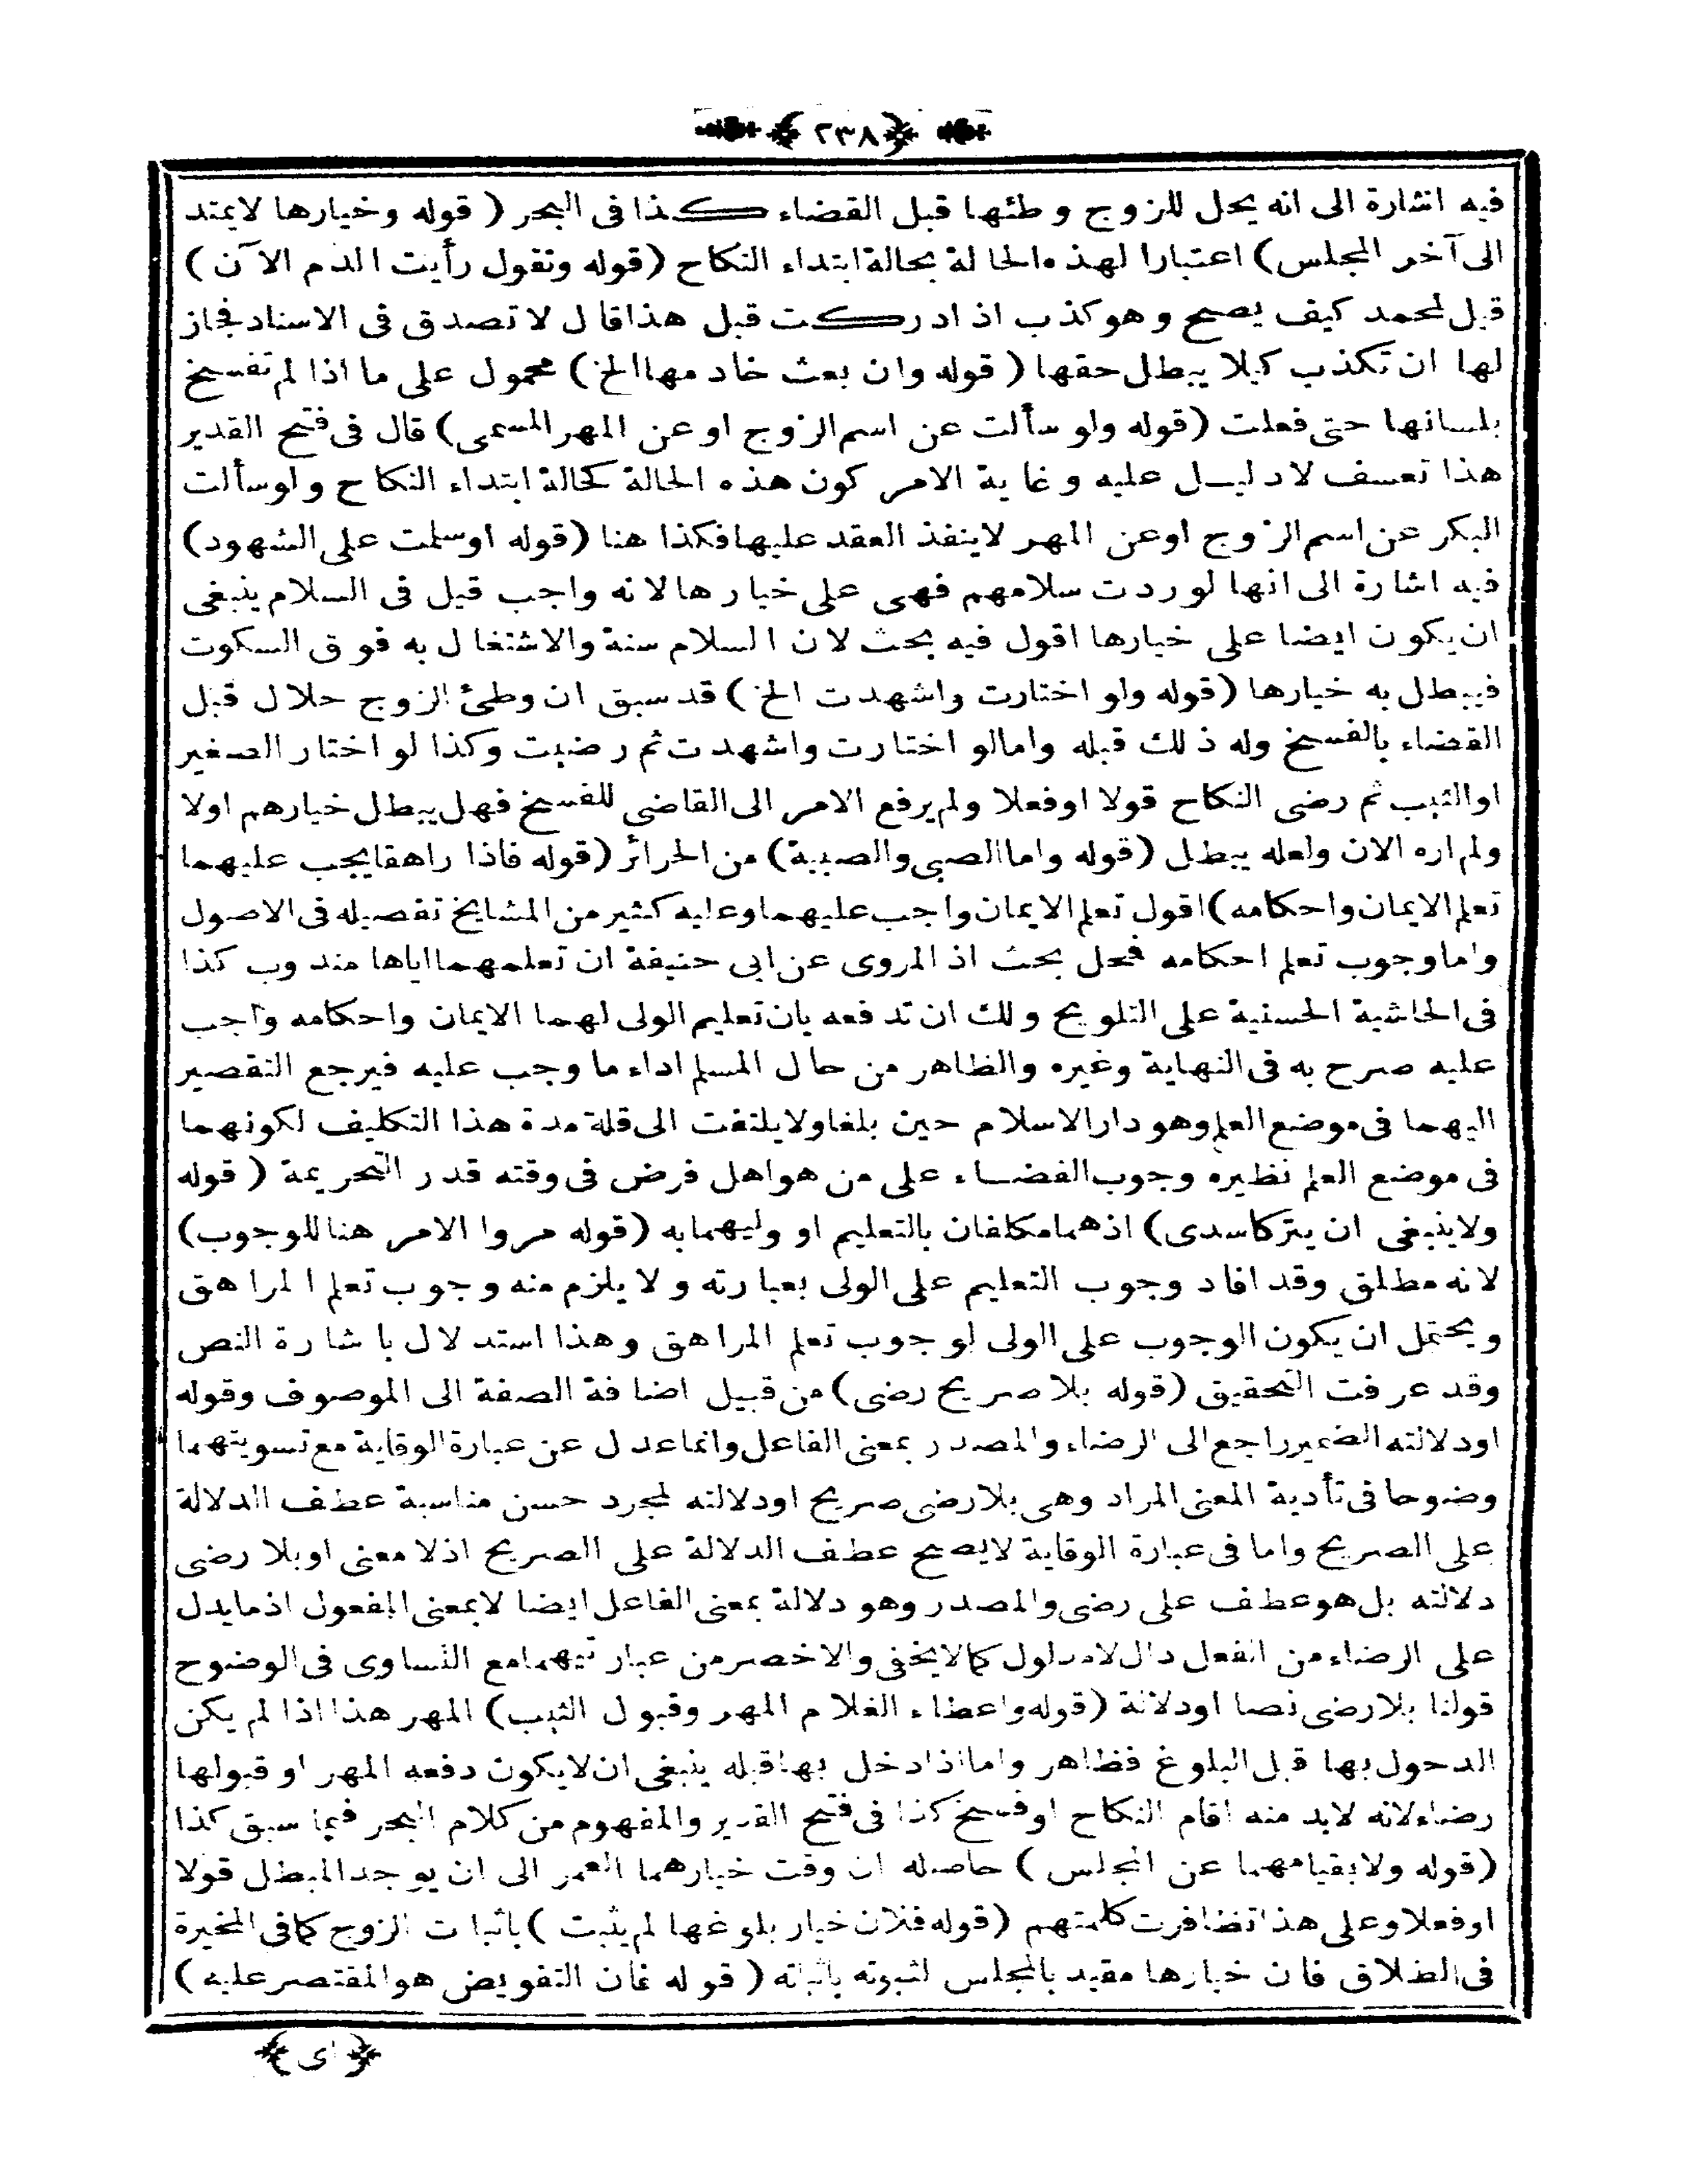 ﴿٢٣٨﴾
فيه اشارة الى انه يحل للزوج وطئها قبل القضاء كذا فى البحر ( قوله وخيارها لايمتد
الى آخر المجلس) اعتبارا لهذه الحالة بحالة ابتداء النكاح (قوله وتقول رأيت الدم الآن )
قيل لمحمد كيف يصح وهو كذب اذ ادركت قبل هذا قال لا تصدق فى الاسناد فجاز
لها ان تكذب كيلا يبطل حقها ( قوله وان بعث خادمها الخ ) محمول على ما اذا لم تفسخ
بلسانها حتى فعلت (قوله ولو سألت عن اسم الزوج او عن المهر المسمى) قال فى فتح القدير
هذا تعسف لا دليل عليه وغاية الامر كون هذه الحالة كحالة ابتداء النكاح ولو سألت
البكر عن اسم الزوج او عن المهر لاينفذ العقد عليها فكذا هنا (قوله او سلمت على الشهود)
فيه اشارة الى انها لو ردت سلامهم فهى على خيارها لانه واجب قيل فى السلام ينبغى
ان يكون ايضا على خيارها اقول فيه بحث لان السلام سنة والاشتغال به فوق السكوت
فيبطل به خيارها (قوله ولو اختارت واشهدت الخ ) قد سبق ان وطئ الزوج حلال قبل
القضاء بالفسخ وله ذلك قبله وامالو اختارت واشهدت ثم رضيت وكذا لو اختار الصغير
او الثيب ثم رضى النكاح قولا او فعلا ولم يرفع الامر الى القاضى للفسخ فهل يبطل خيارهم اولا
ولم اره الان ولعله يبطل (قوله واما الصبى والصبية) من الحرائر (قوله فاذا راهقا يجب عليهما
تعلم الايمان واحكامه) اقول تعلم الايمان واجب عليهما وعليه كثير من المشايخ تفصيله فى الاصول
واما وجوب تعلم احكامه فمحل بحث اذ المروى عن ابى حنيفة ان تعلمهما اياها مندوب كذا
فى الحاشية الحسنية على التلويح ولك ان تدفعه بان تعليم الولى لهما الايمان واحكامه واجب
عليه صرح به فى النهاية وغيره والظاهر من حال المسلم اداء ما وجب عليه فيرجع التقصير
اليهما فى موضع العلم وهو دار الاسلام حين بلغا ولا يلتفت الى قلة مدة هذا التكليف لكونهما
فى موضع العلم نظيره وجوب القضاء على من هو اهل فرض فى وقته قدر التحريمة ( قوله
ولاينبغى ان يتركا سدى) اذ هما مكلفان بالتعليم او وليهما به (قوله مروا الامر هنا للوجوب)
لانه مطلق وقد افاد وجوب التعليم على الولى بعبارته ولا يلزم منه وجوب تعلم المراهق
ويحتمل ان يكون الوجوب على الولى لوجوب تعلم المراهق وهذا استدلال باشارة النص
وقد عرفت التحقيق (قوله بلا صريح رضى) من قبيل اضافة الصفة الى الموصوف وقوله
او دلالته الضمير راجع الى الرضاء والمصدر بمعنى الفاعل وانما عدل عن عبارة الوقاية مع تسويتهما
وضوحا فى تأدية المعنى المراد وهى بلا رضى صريح او دلالته لمجرد حسن مناسبة عطف الدلالة
على الصريح واما فى عبارة الوقاية لايصح عطف الدلالة على الصريح اذ لا معنى او بلا رضى
دلالته بل هو عطف على رضى والمصدر وهو دلالة بمعنى الفاعل ايضا لابمعنى المفعول اذ مايدل
على الرضاء من الفعل دال لا مدلول كما لايخفى والاخصر من عبارتيهما مع التساوى فى الوضوح
قولنا بلا رضى نصا او دلالة (قوله واعطاء الغلام المهر وقبول الثيب) المهر هذا اذا لم يكن
الدخول بها قبل البلوغ فظاهر واما اذا دخل بها قبله ينبغى ان لايكون دفعه المهر او قبولها
رضاء لانه لابد منه اقام النكاح او فسخ كذا فى فتح القدير والمفهوم من كلام البحر فيما سبق كذا
(قوله ولا بقيامهما عن المجلس ) حاصله ان وقت خيارهما العمر الى ان يوجد المبطل قولا
او فعلا وعلى هذا تظافرت كلمتهم (قوله فلان خيار بلوغها لم يثبت ) باثبات الزوج كما فى المخيرة
فى الطلاق فان خيارها مقيد بالمجلس لثبوته باثباته ( قوله فان التفويض هو المقتصر عليه )
﴿اى﴾